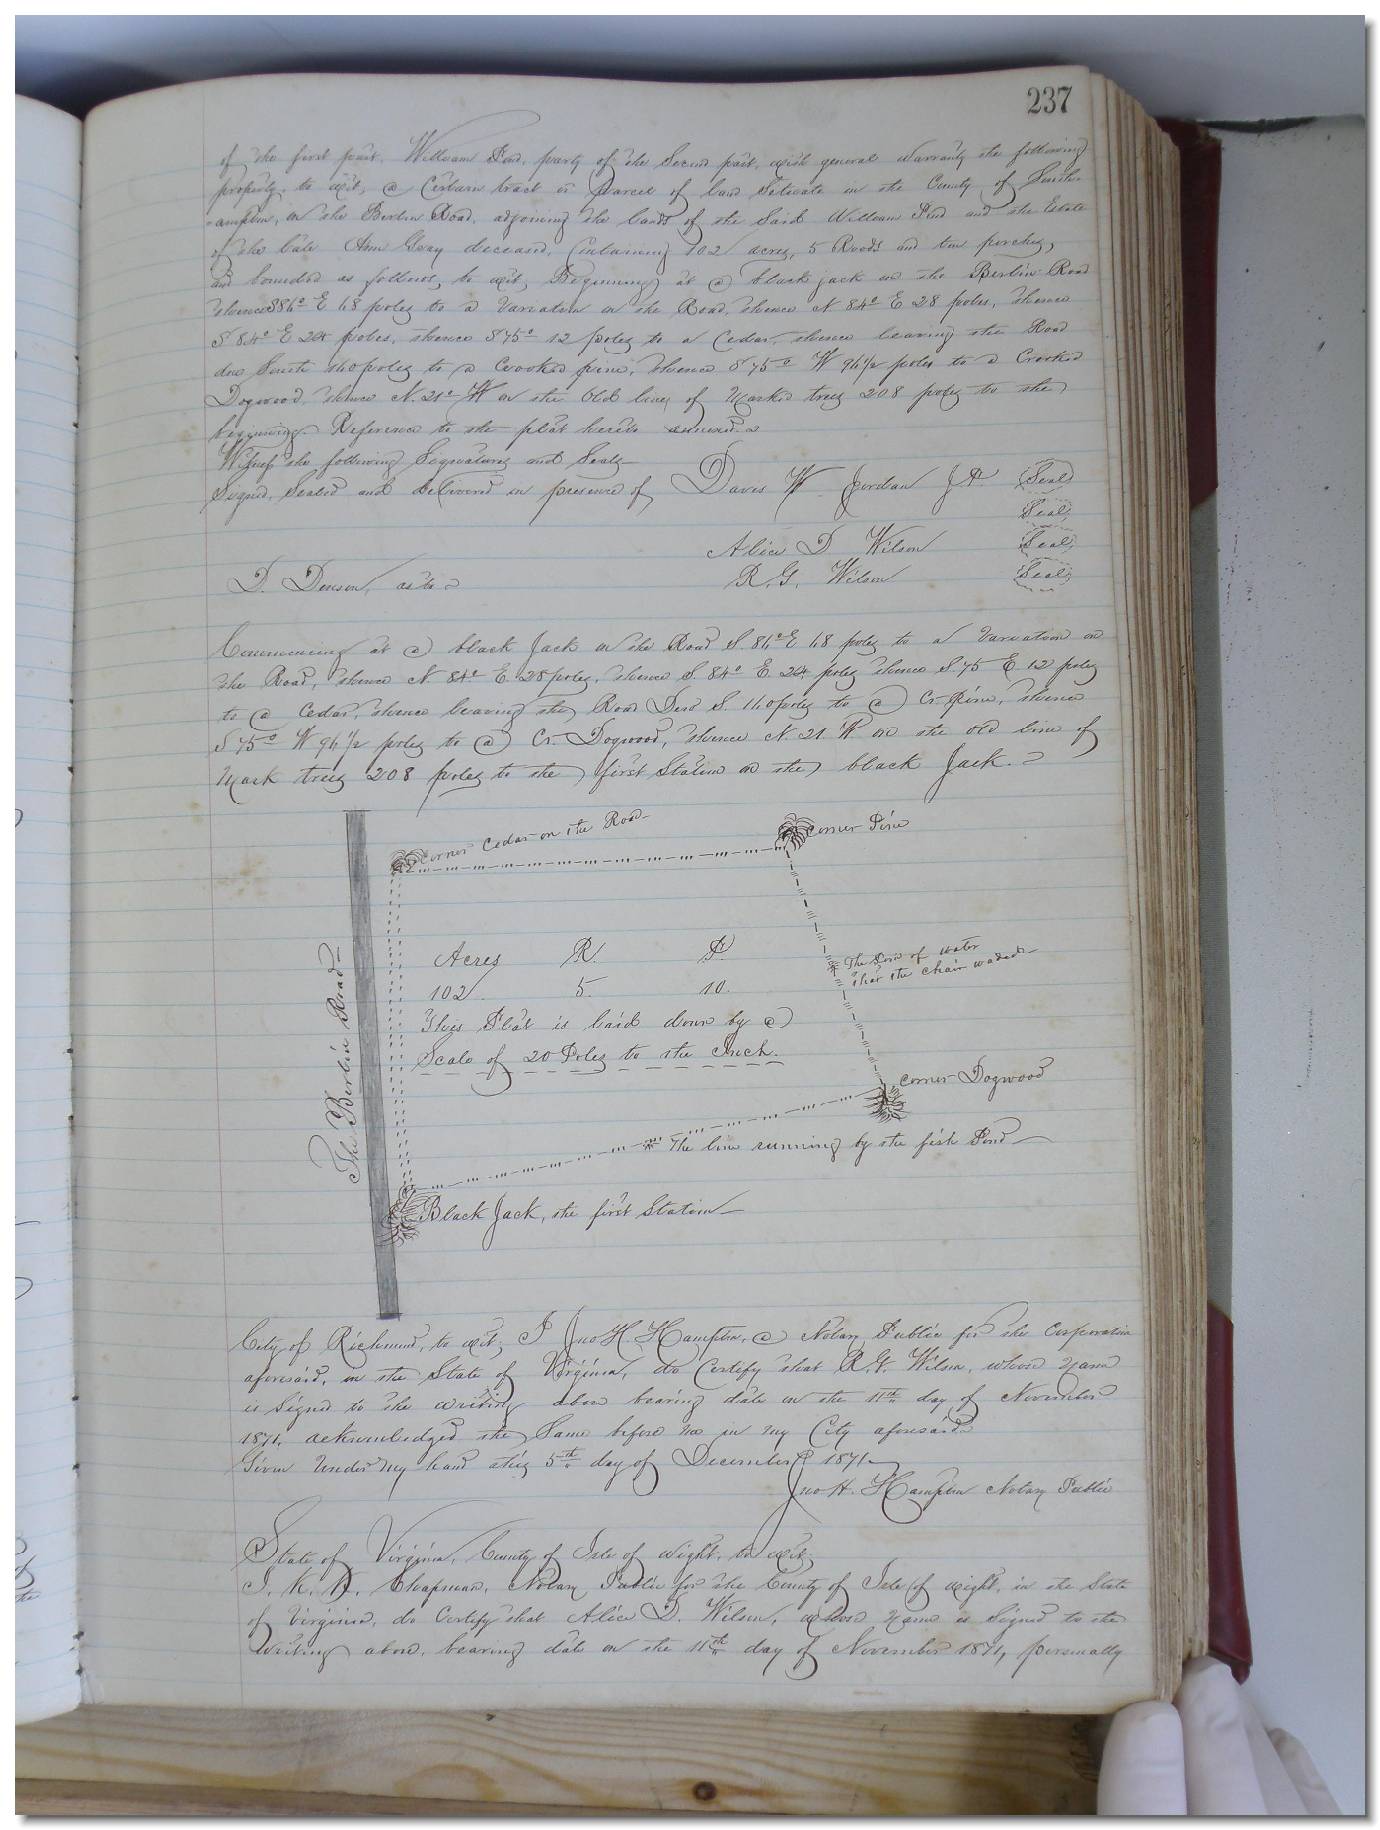 237
of the first part, William Pond, party of the Second part, with general warranty the following
property, to wit, a Certain tract or parcel of land Setuate in the County of South-
ampton, on the Berlin Road, adjoining the lands of the Said William Pond and the Estate
of the late Ann Gray deceased, Containing 102 acres, 5 Roods and ten perches,
and bounded as follows, to wit, Beginning at a black jack on the Berlin Road
thence S 86° E 68 poles to a Variation on the Road, thence N 84° E 28 poles, thence
S 84° E 24 poles, thence S 75° 12 poles to a Cedar, thence leaving the Road
due South 160 poles to a Crooked pine, thence S 75° W 96½ poles to a Crooked
Dogwood, thence N. 21° W on the Old line of Marked trees 208 poles to the
beginning. Reference to the plat hereto annexed.
Witness the following Signatures and Seals
Signed, Sealed and delivered in presence of Davis W Jordan (Seal)
(Seal)
Alice D Wilson (Seal)
D. Denson, as to R. G. Wilson (Seal)
Commencing at a black Jack on the Road S. 86° E 68 poles to a Variation on
the Road, thence N 84° E 28 poles, thence S. 84° E 24 poles thence S 75 E 12 poles
to a Cedar, thence leaving the Road Due S. 160 poles to a Cr. Pine, thence
S 75° W 96½ poles to a Cr. Dogwood, thence N. 21 W on the old line of
Mark trees 208 poles to the first Station on the black Jack.
Corner Cedar on the Road
Corner Pine
The Berlin Road
Acres R. P.
102. 5. 10.
This Plat is laid down by a
Scale of 20 Poles to the Inch.
The of water
that the chain waded
Corner Dogwood
The line running by the fish Pond
Black Jack, the first Station
City of Richmond, to wit; I Jno H. Hampton, a Notary Public for the Corporation
aforesaid, in the State of Virginia, do Certify that R. G. Wilson, whose name
is Signed to the writing above bearing date on the 11th day of November
1871, acknowledged the Same before me in my City aforesaid
Given Under my hand this 5th day of December 1871
Jno H. Hampton Notary Public
State of Virginia, County of Isle of Wight, to wit;
I, K. Chapman, Notary Public for the County of Isle of Wight, in the State
of Virginia, do Certify that Alice D. Wilson, whose name is Signed to the
writing above, bearing date on the 11th day of November 1871, personally